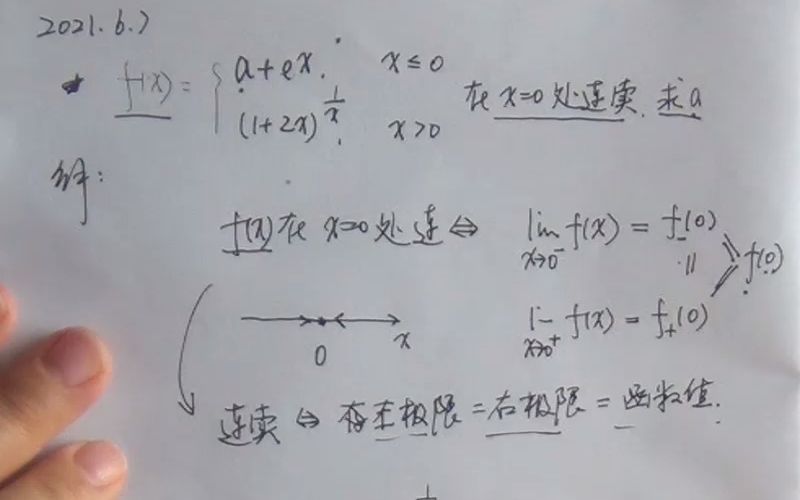 2021.6.7
* f(x) = { a+ex, x≤0
(1+2x)^(1/x), x>0 在 x=0 处连续, 求a
解:
f(x)在 x=0处连 ⇔ lim x→0⁻ f(x) = f₋(0)
|| f(0)
lim x→0⁺ f(x) = f₊(0)
0 x
连续 ⇔ 存左极限 = 右极限 = 函数值.